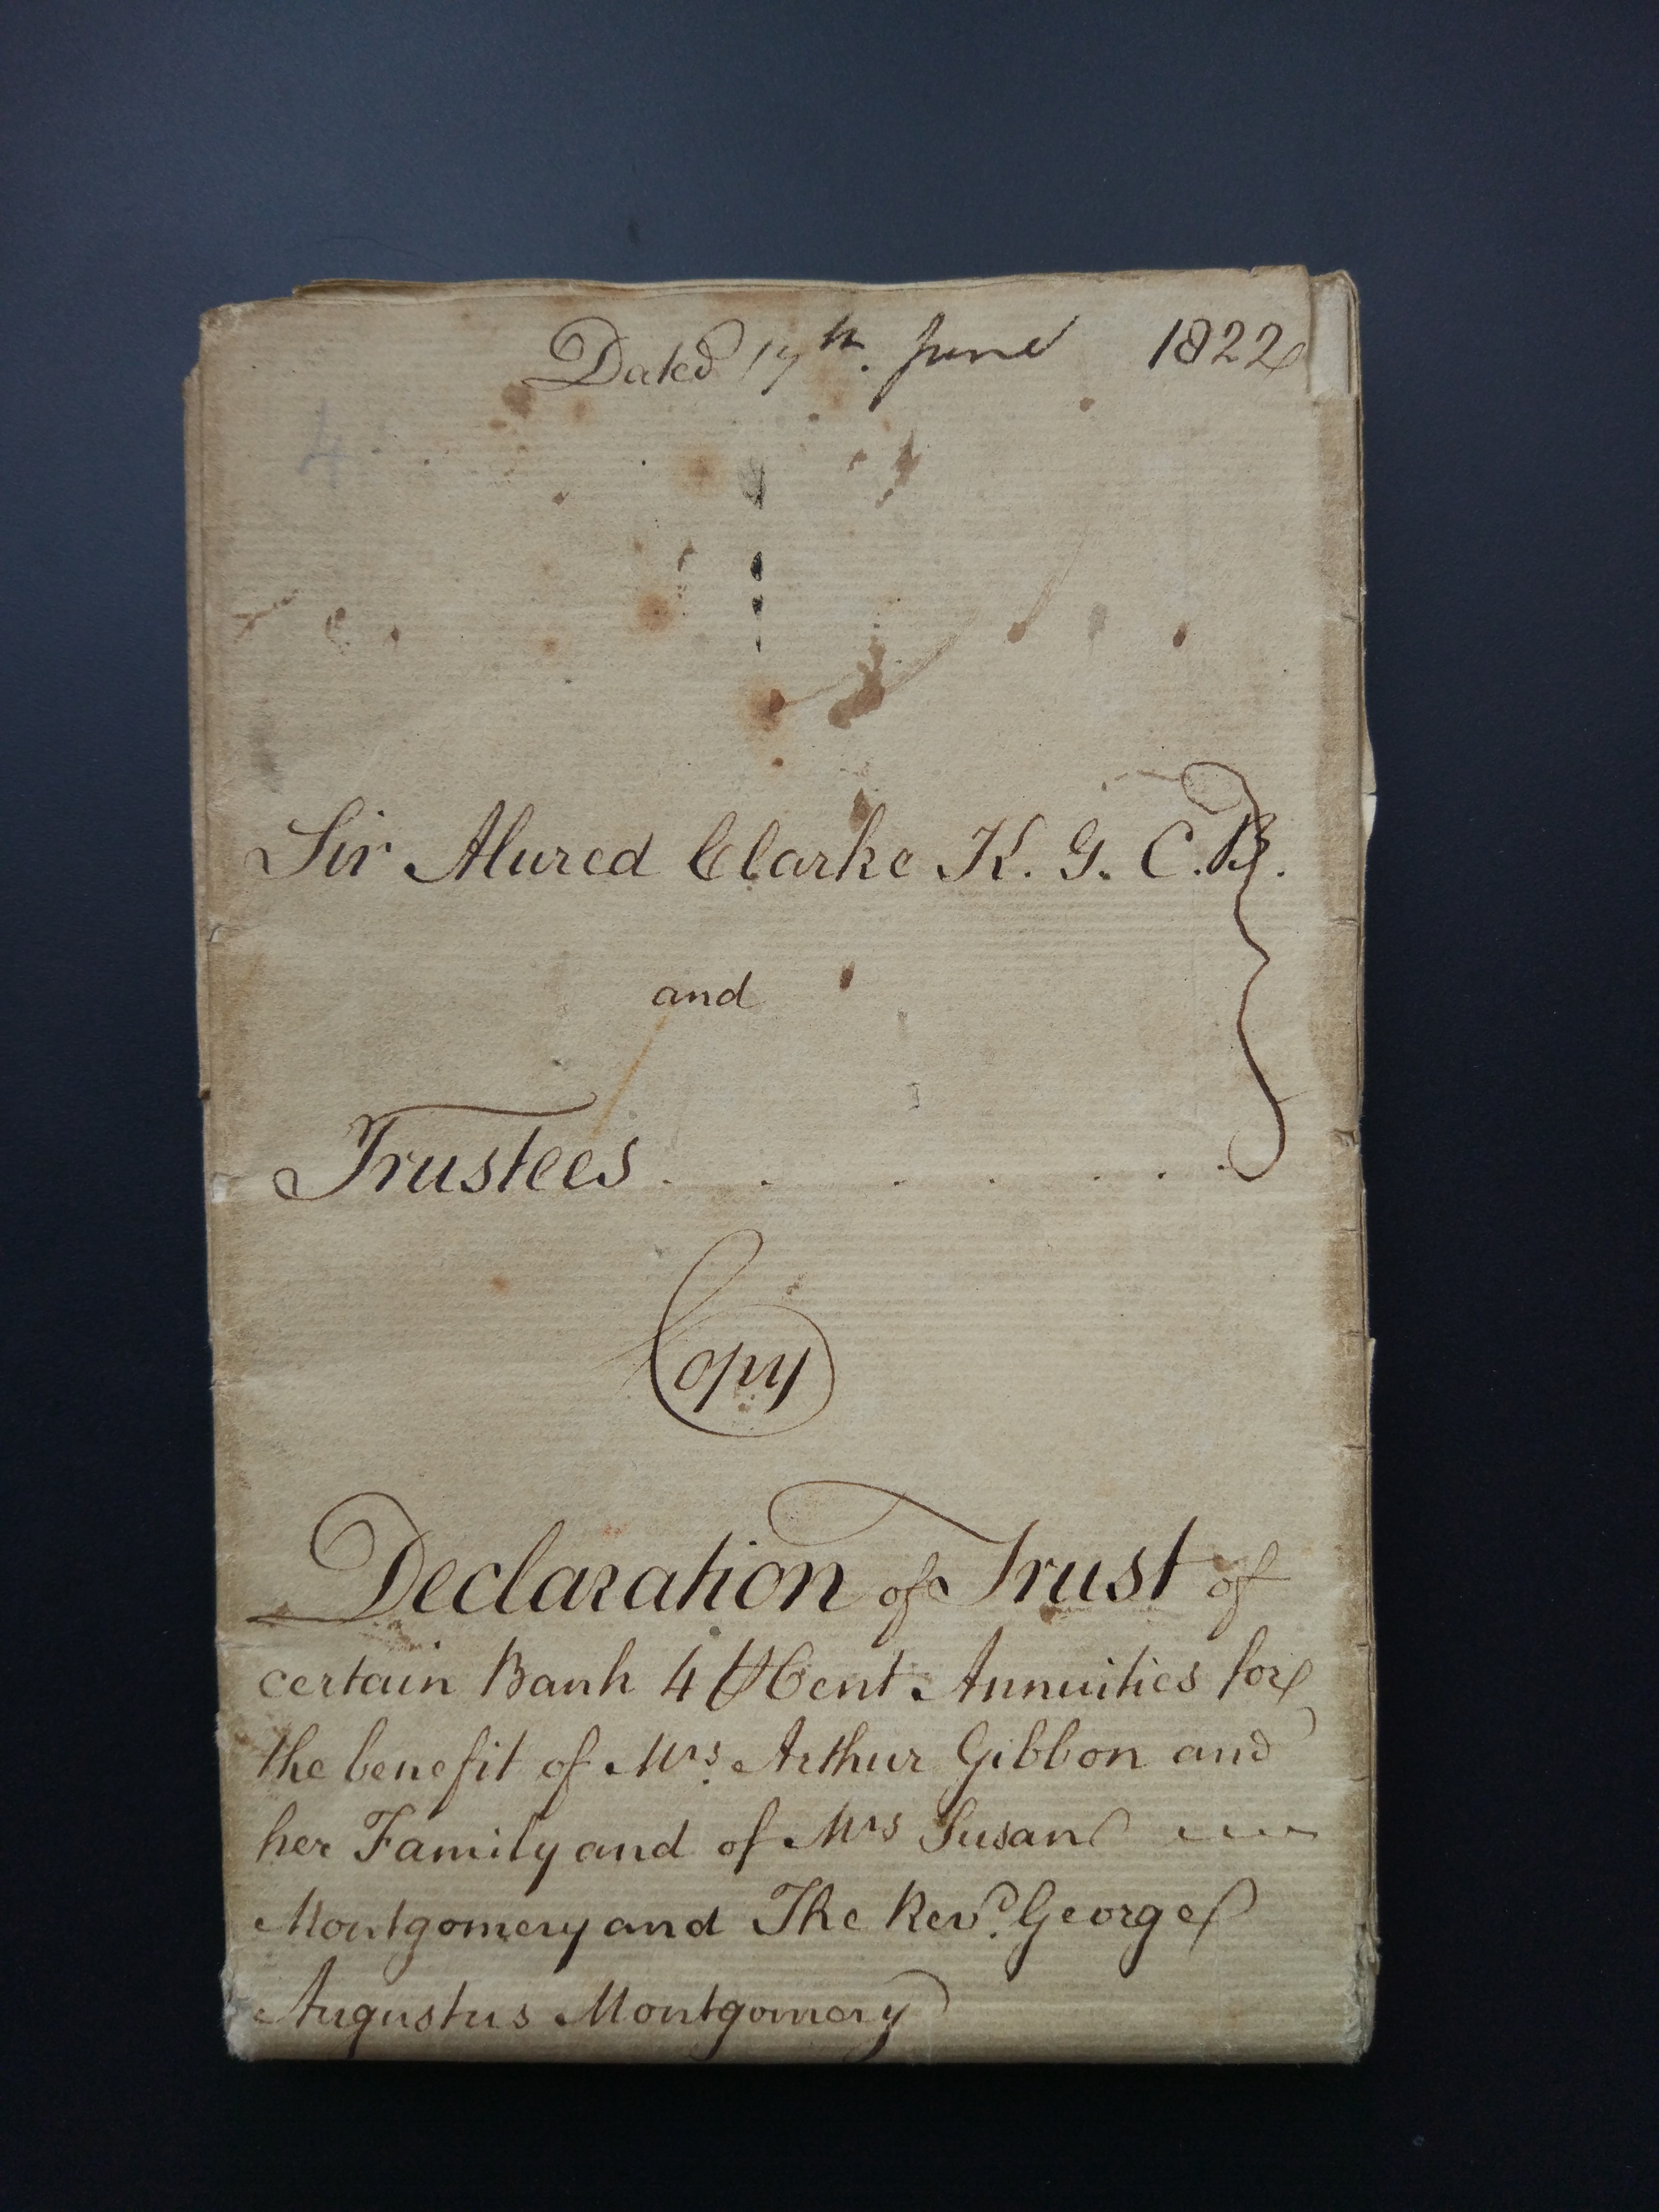 Dated 17th. June 1822
4
Sir Alured Clarke K. G. C. B.
and
Trustees . . . . . . .
Copy
Declaration of Trust of
certain Bank 4 ⅌ Cent Annuities for
the benefit of Mrs. Arthur Gibbon and
her Family and of Mrs Susan
Montgomery and The Revd. George
Augustus Montgomery